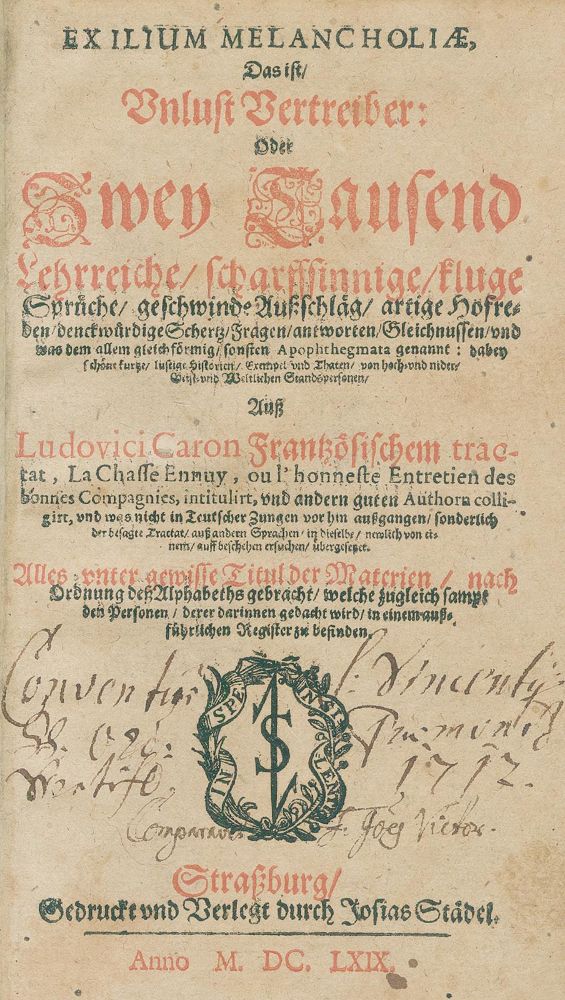 EXILIUM MELANCHOLIÆ,
Das ist/
Vnlust Vertreiber:
Oder
Zwey Tausend
Lehrreiche/ scharffsinnige/ kluge
Sprüche/ geschwinde Außschläg/ artige Hofre-
den/ denckwürdige Schertz/ Fragen/ antworten/ Gleichnussen/ vnd
was dem allem gleichförmig/ sonsten Apophthegmata genannt: dabey
schöne kurtze/ lustige Historien/ Exempel vnd Thaten/ von hoch-vnd nider/
Geist-vnd Weltlichen Standspersonen/
Auß
Ludovici Caron Frantzösischem trac-
tat, La Chasse Ennuy, ou l'honneste Entretien des
bonnes Compagnies, intitulirt, vnd andern guten Authorn colli-
girt, vnd was nicht in Teutscher Zungen vor hin außgangen/ sonderlich
der besagte Tractat/ auß andern Sprachen/ in dieselbe/ newlich von ei-
nem/ auff beschehen ersuchen/ übergesetzet.
Alles vnter gewisse Titul der Materien/ nach
Ordnung deß Alphabeths gebracht/ welche zugleich sampt
den Personen/ derer darinnen gedacht wird/ in einem auß-
führlichen Register zu befinden.
Conventus S. Vincentij
IN SPE ET SILENTIO
1712.
Comparavit F. Joës Victor.
Straßburg/
Gedruckt vnd Verlegt durch Josias Städel.
Anno M. DC. LXIX.